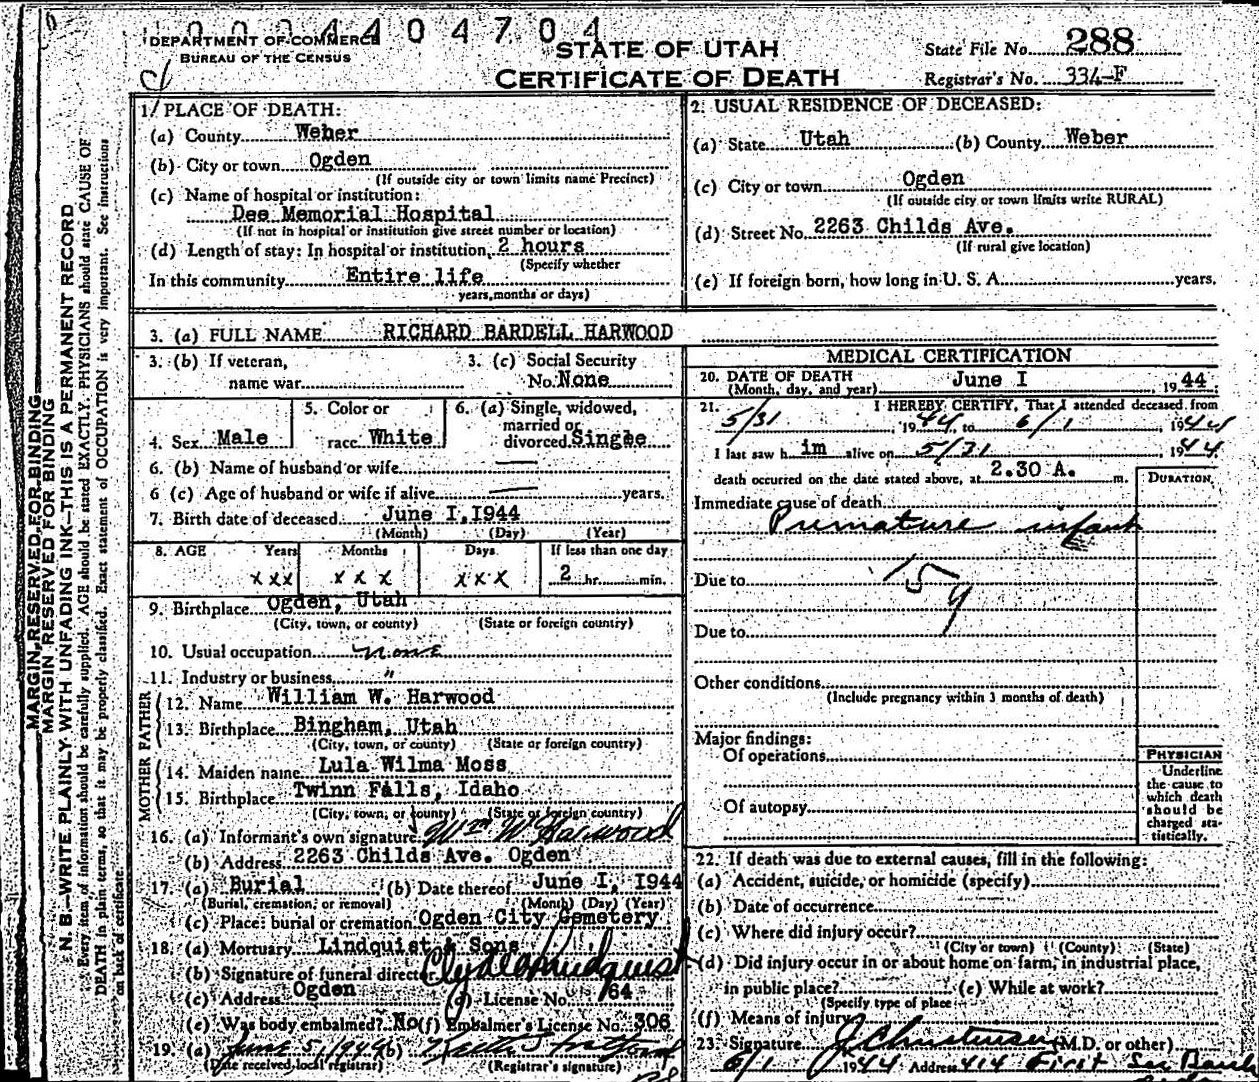 0 0 4 4 0 4 7 0 4
DEPARTMENT OF COMMERCE
BUREAU OF THE CENSUS
STATE OF UTAH
CERTIFICATE OF DEATH
State File No. 288
Registrar's No. 334-F
1. PLACE OF DEATH:
(a) County Weber
(b) City or town Ogden
(If outside city or town limits name Precinct)
(c) Name of hospital or institution:
Dee Memorial Hospital
(If not in hospital or institution give street number or location)
(d) Length of stay: In hospital or institution, 2 hours
(Specify whether
In this community Entire life
years, months or days)
2. USUAL RESIDENCE OF DECEASED:
(a) State Utah (b) County Weber
(c) City or town Ogden
(If outside city or town limits write RURAL)
(d) Street No. 2263 Childs Ave.
(If rural give location)
(e) If foreign born, how long in U. S. A. years.
3. (a) FULL NAME RICHARD BARDELL HARWOOD
3. (b) If veteran, name war
3. (c) Social Security No. None
4. Sex Male
5. Color or race White
6. (a) Single, widowed, married or divorced Single
6. (b) Name of husband or wife —
6 (c) Age of husband or wife if alive — years.
7. Birth date of deceased June I, 1944
(Month) (Day) (Year)
8. AGE Years Months Days If less than one day
xxx xxx xxx 2 hr. min.
9. Birthplace Ogden, Utah
(City, town, or county) (State or foreign country)
10. Usual occupation none
11. Industry or business "
FATHER
12. Name William W. Harwood
13. Birthplace Bingham, Utah
(City, town, or county) (State or foreign country)
MOTHER
14. Maiden name Lula Wilma Moss
15. Birthplace Twinn Falls, Idaho
(City, town, or county) (State or foreign country)
16. (a) Informant's own signature Wm W Harwood
(b) Address 2263 Childs Ave. Ogden
17. (a) Burial (b) Date thereof June I, 1944
(Burial, cremation, or removal) (Month) (Day) (Year)
(c) Place: burial or cremation Ogden City Cemetery
18. (a) Mortuary Lindquist & Sons
(b) Signature of funeral director Clyde Lindquist
(c) Address Ogden (d) License No. 164
(e) Was body embalmed? No (f) Embalmer's License No. 306
19. (a) June 5, 1944 (b)
(Date received, local registrar) (Registrar's signature)
MEDICAL CERTIFICATION
20. DATE OF DEATH June I 1944
(Month, day, and year)
21. I HEREBY CERTIFY, That I attended deceased from
5/31, 1944, to 6/1 1944
I last saw him alive on 5/31 1944
death occurred on the date stated above, at 2.30 A. m.
DURATION
Immediate cause of death
Premature infant
Due to
159
Due to
Other conditions
(Include pregnancy within 3 months of death)
Major findings:
Of operations
Of autopsy
PHYSICIAN
Underline
the cause to
which death
should be
charged sta-
tistically.
22. If death was due to external causes, fill in the following:
(a) Accident, suicide, or homicide (specify)
(b) Date of occurrence
(c) Where did injury occur?
(City or town) (County) (State)
(d) Did injury occur in or about home on farm, in industrial place,
in public place? (e) While at work?
(Specify type of place)
(f) Means of injury
23. Signature J. Christensen (M.D. or other)
6/1 1944 Address 414 First Sec Bank
MARGIN RESERVED FOR BINDING
MARGIN RESERVED FOR BINDING
N. B.—WRITE PLAINLY, WITH UNFADING INK—THIS IS A PERMANENT RECORD
Every item of information should be carefully supplied. AGE should be stated EXACTLY. PHYSICIANS should state CAUSE OF
DEATH in plain terms, so that it may be properly classified. Exact statement of OCCUPATION is very important. See instructions
on back of certificate.